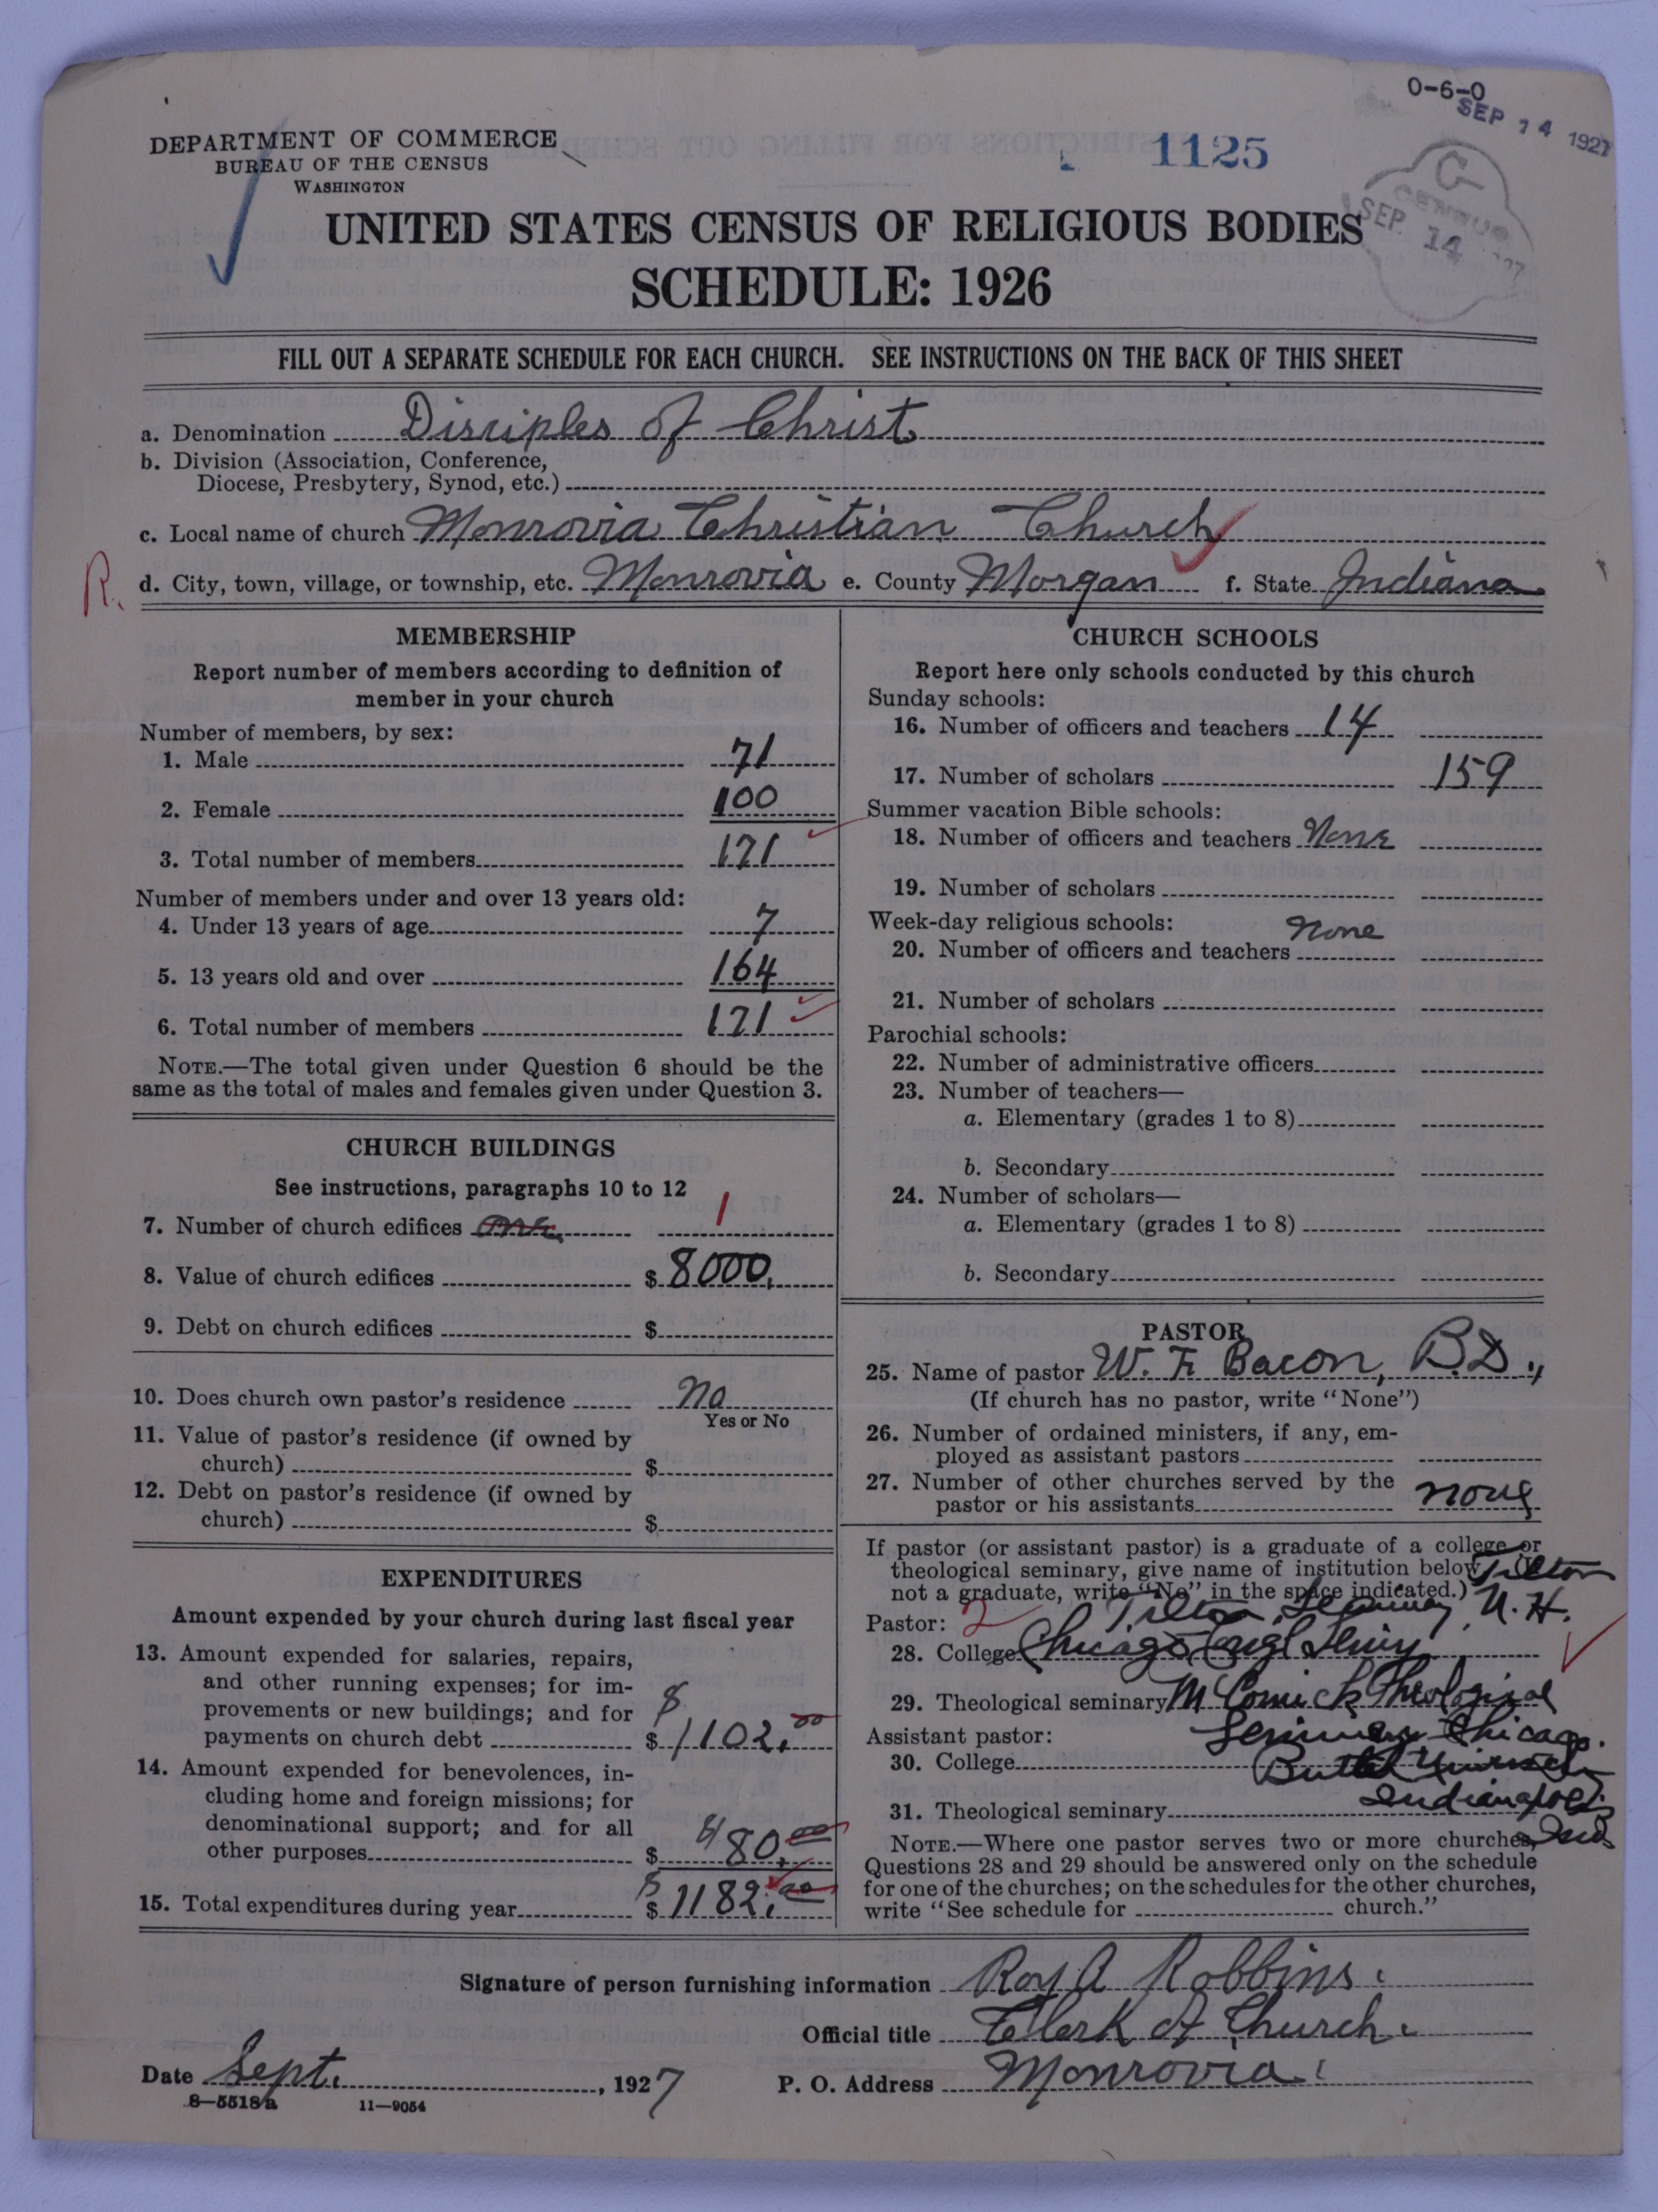 0-6-0
SEP 14 1927
DEPARTMENT OF COMMERCE
BUREAU OF THE CENSUS
WASHINGTON
1125
C
CENSUS
SEP 14 '27
UNITED STATES CENSUS OF RELIGIOUS BODIES
SCHEDULE: 1926
FILL OUT A SEPARATE SCHEDULE FOR EACH CHURCH. SEE INSTRUCTIONS ON THE BACK OF THIS SHEET
a. Denomination Disciples of Christ
b. Division (Association, Conference,
Diocese, Presbytery, Synod, etc.)
c. Local name of church Monrovia Christian Church
R. d. City, town, village, or township, etc. Monrovia e. County Morgan f. State Indiana
MEMBERSHIP
Report number of members according to definition of
member in your church
Number of members, by sex:
1. Male 71
2. Female 100
3. Total number of members 171
Number of members under and over 13 years old:
4. Under 13 years of age 7
5. 13 years old and over 164
6. Total number of members 171
NOTE.—The total given under Question 6 should be the
same as the total of males and females given under Question 3.
CHURCH BUILDINGS
See instructions, paragraphs 10 to 12
7. Number of church edifices one 1
8. Value of church edifices $ 8000.
9. Debt on church edifices $
10. Does church own pastor's residence No
Yes or No
11. Value of pastor's residence (if owned by
church) $
12. Debt on pastor's residence (if owned by
church) $
EXPENDITURES
Amount expended by your church during last fiscal year
13. Amount expended for salaries, repairs,
and other running expenses; for im-
provements or new buildings; and for
payments on church debt $ $1102.00
14. Amount expended for benevolences, in-
cluding home and foreign missions; for
denominational support; and for all
other purposes $ $80.00
15. Total expenditures during year $ $1182.00
CHURCH SCHOOLS
Report here only schools conducted by this church
Sunday schools:
16. Number of officers and teachers 14
17. Number of scholars 159
Summer vacation Bible schools:
18. Number of officers and teachers None
19. Number of scholars
Week-day religious schools:
20. Number of officers and teachers None
21. Number of scholars
Parochial schools:
22. Number of administrative officers
23. Number of teachers—
a. Elementary (grades 1 to 8)
b. Secondary
24. Number of scholars—
a. Elementary (grades 1 to 8)
b. Secondary
PASTOR
25. Name of pastor W. F. Bacon, B.D.,
(If church has no pastor, write "None")
26. Number of ordained ministers, if any, em-
ployed as assistant pastors
27. Number of other churches served by the
pastor or his assistants none
If pastor (or assistant pastor) is a graduate of a college or
theological seminary, give name of institution below. (If
not a graduate, write "No" in the space indicated.) Tilton
Pastor: 2 Tilton Seminary, N. H.
28. College Chicago
29. Theological seminary McCormick Theological
Assistant pastor: Seminary Chicago.
30. College Butler University
31. Theological seminary Indianapolis
Ind
NOTE.—Where one pastor serves two or more churches,
Questions 28 and 29 should be answered only on the schedule
for one of the churches; on the schedules for the other churches,
write "See schedule for church."
Signature of person furnishing information Roy A Robbins.
Official title Clerk of Church.
Date Sept. , 1927 P. O. Address Monrovia.
8—5518a 11—9054